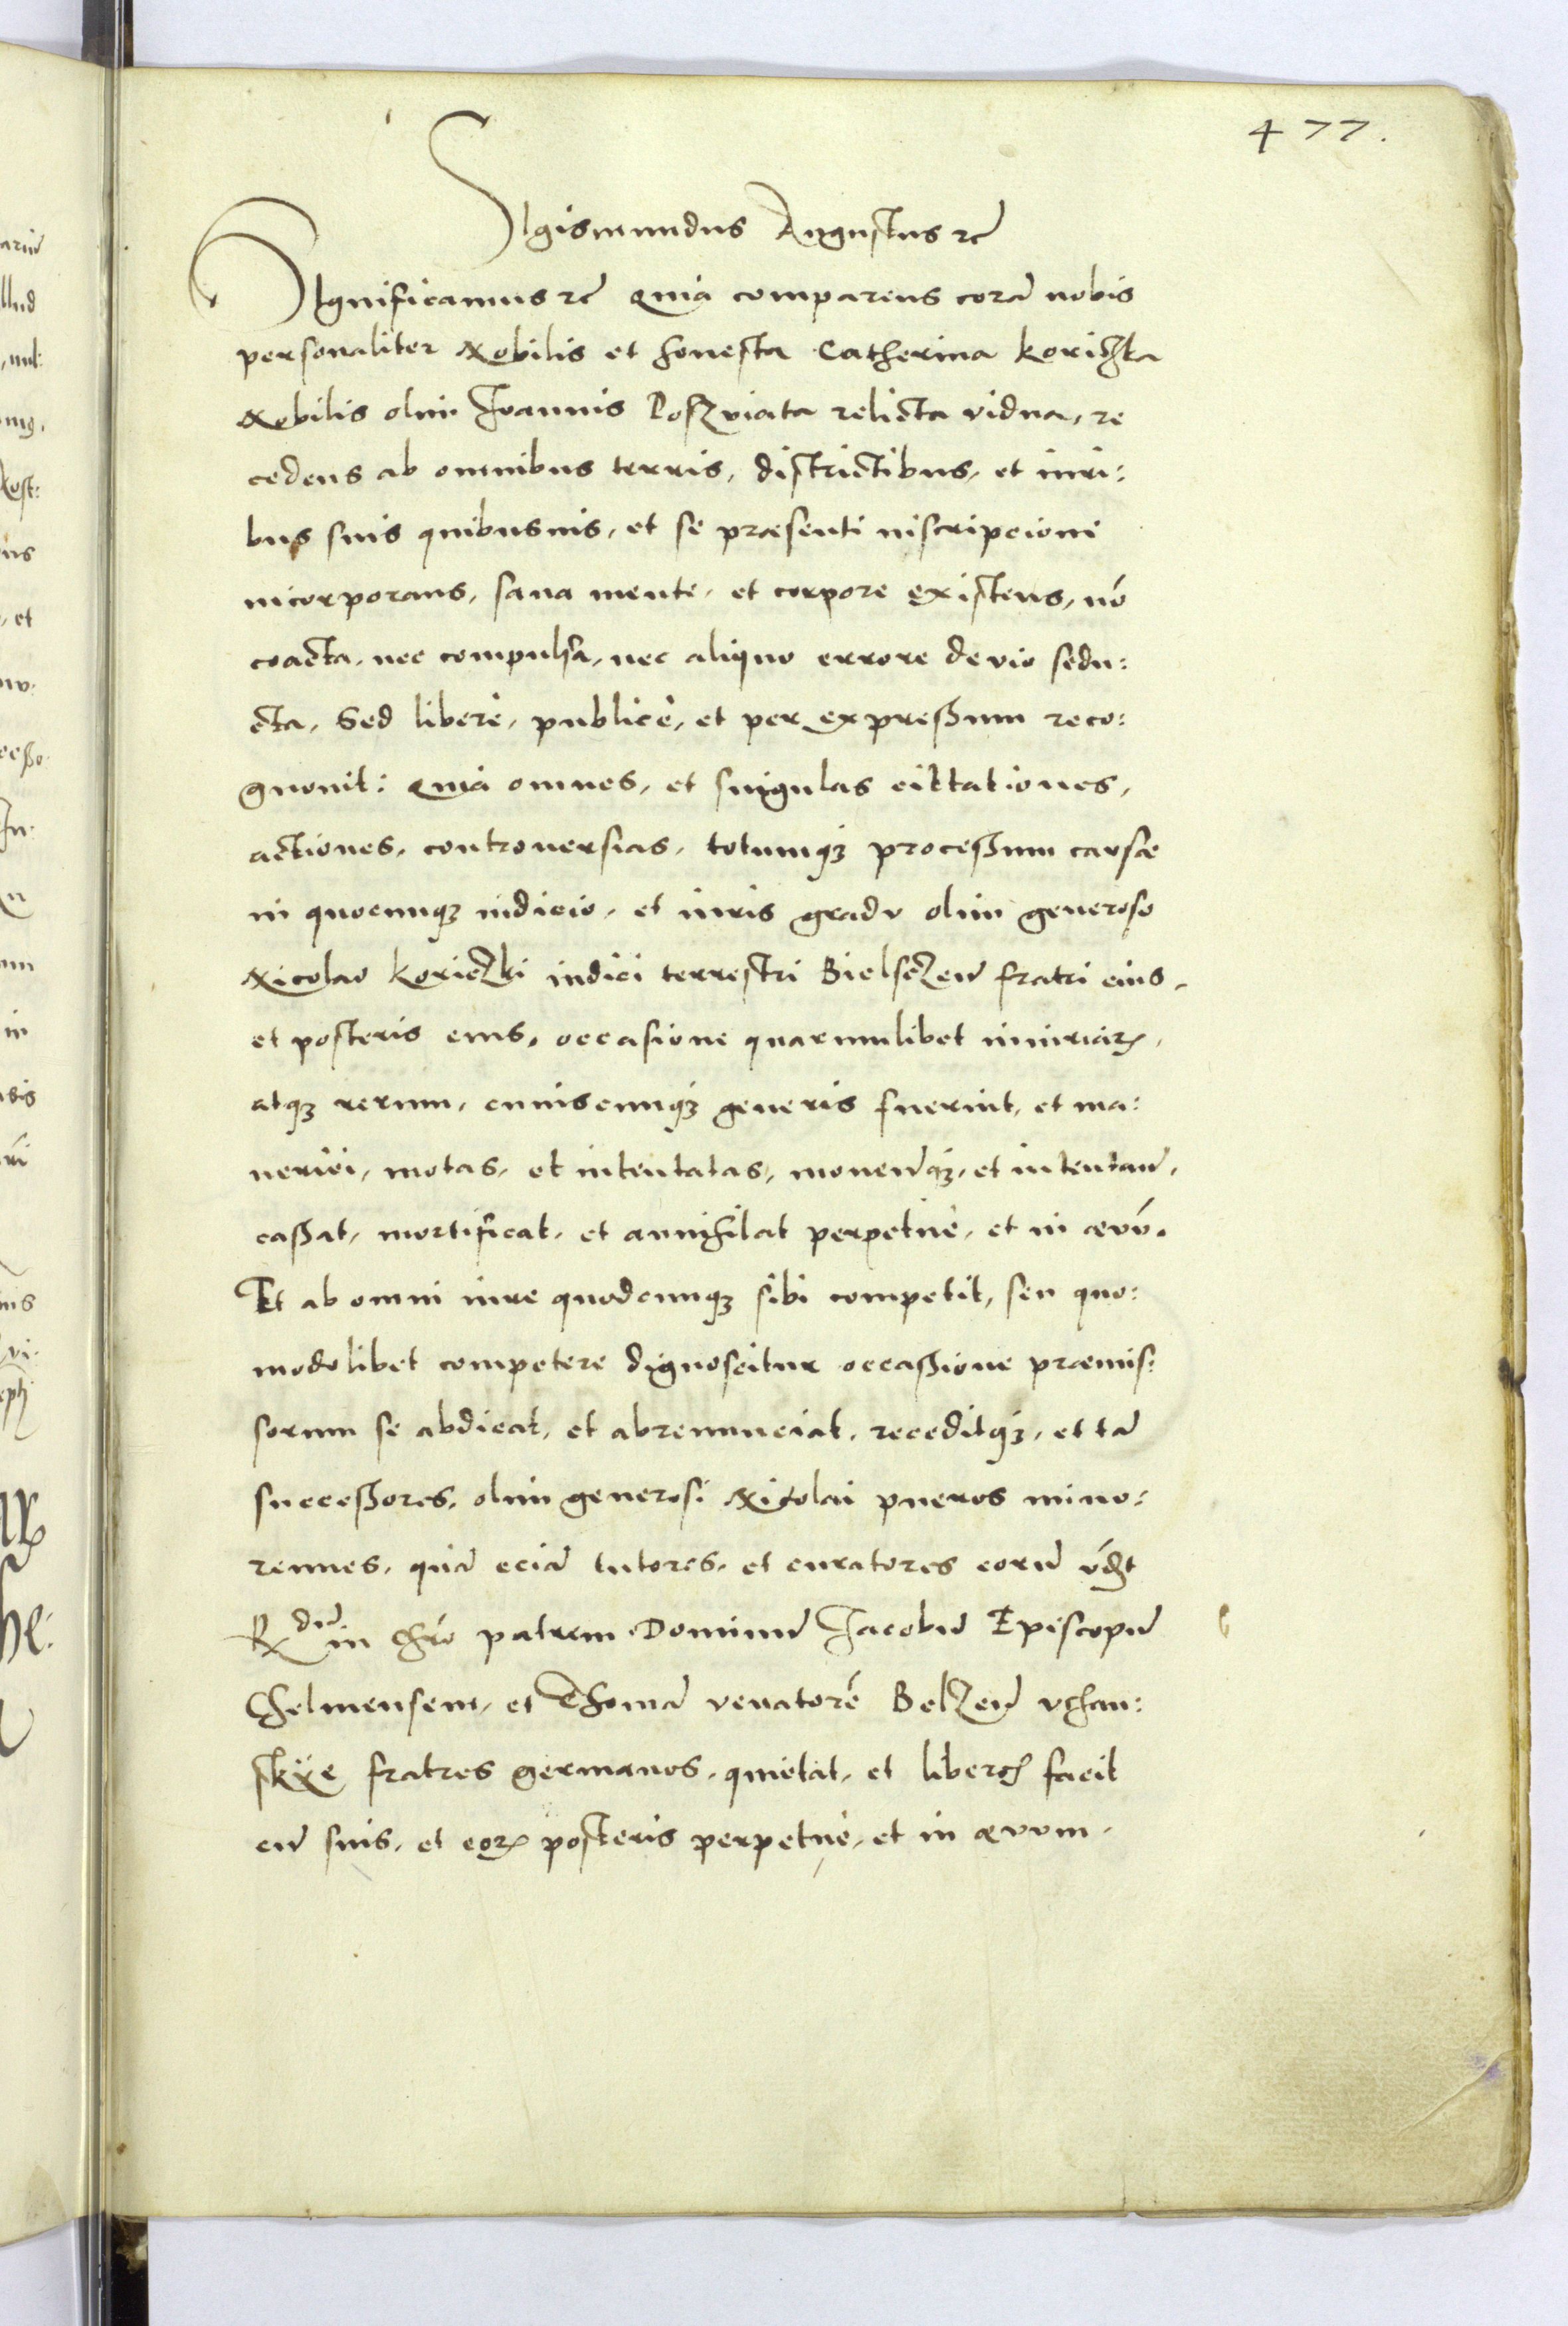 477.
SIgismundus Augustus rc̃
SIgnificamus rc̃ Quia comparens corã nobis
personaliter Nobilis et honesta Catherina Koriczka
Nobilis olim Joannis Doszviata relicta vidua, re
cedens ab omnibus terris, districtibus, et iuri:
bus suis quibusuis, et se præsenti inscripcioni
incorporans, sana mente, et corpore existens, nõ
coacta, nec compulsa, nec aliquo errore devio sedu:
cta, Sed liberè, publicè, et per expreßum reco:
gnouit: Quia omnes, et singulas cittationes,
actiones, controuersias, totumqꝫ proceßum causæ
in quocunqꝫ iudicio, et iuris gradu olim generoso
Nicolao Koriczki iudici terrestri Bielsczeñ fratri eius,
et posteris eius, occasione quarumlibet iniuriaꝝ,
atqꝫ rerum, cuiuscunqꝫ generis fuerint, et ma:
neriei, motas, et intentatas, mouendqꝫ, et intentañ,
caßat, mortificat, et annihilat perpetuè, et in ævũ.
Et ab omni iure quodcunqꝫ sibi competit, seu quo:
modolibet competere dignoscitur occaßione præmis:
sorum se abdicat, et abrenunciat, receditqꝫ, et tã
succeßores, olim generosi Nicolai pueros mino:
rennes, quã eciã tutores, et curatores eorũ vdꝫt
Rdũ in Chrõ patrem Dominũ Jacobũ Episcopũ
Chelmensem, et Thomã venatorẽ Belzeñ vchan:
skÿe fratres germanos, quietat, et liberos facit
cũ suis, et eoꝝ posteris perpetuè, et in ævum.